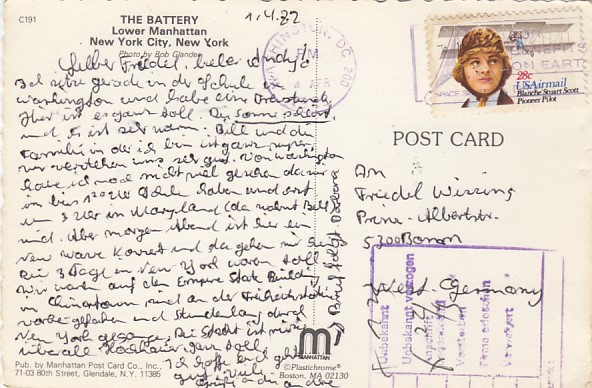 C191
THE BATTERY
Lower Manhattan
New York City, New York
Photo by Bob Glander
1.4.82
Lieber Friedel, liebe
Ich sitze gerade in der Schule in
Washington und habe eine Freistunde
Hier ist es ganz toll. Die Sonne
und es ist sehr warm. Bill und die
Familie in der ich bin ist ganz super
wir verstehen uns sehr gut. Von Washington
habe ich noch nicht viel gesehen da wir
im bis Schule haben und erst
um 3 Uhr in Maryland (da wohnt Bill)
sind. Aber morgen Abend ist hier ein
New wave Konzert und da gehen wir hin
Die 3 Tage in New York waren toll.
Wir waren auf den Empire State Building
in Chinatown sind an der Freiheitsstatue
vorbei gefahren und Stundenlang durch
New York gegangen. Die Stadt ist
überall Hochhäuser
Ich hoffe Euch geht
gut
Brief folgt
WASHINGTON, DC 200
PM
28c
USAirmail
Blanche Stuart Scott
Pioneer Pilot
POST CARD
An
Friedel Wissing
Prinz-Albertstr.
5300 Bonn
West Germany
Unbekannt
Unbekannt verzogen
Firma erloschen
Verweigert
M
MANHATTAN
Pub. by Manhattan Post Card Co., Inc.,
71-03 80th Street, Glendale, N.Y. 11385
©Plastichrome®
Boston, MA 02130